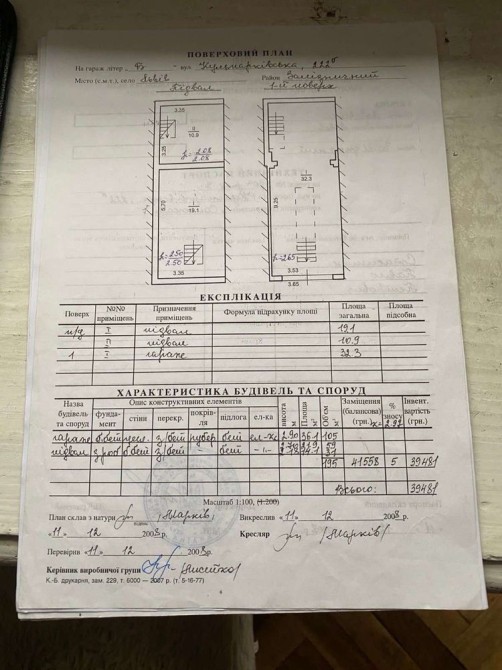 ПОВЕРХОВИЙ ПЛАН
На гараж літер. Б вул. Кульпарківська, 222б
Місто (с.м.т.), село Львів Район Залізничний
Підвал 1-й поверх
3.25
II
10.9
3.25
h=2.08
2.08
5.70
I
19.1
h=2.50
2.50
3.35
L
I
32.3
9.25
h=2.65
3.53
3.65
ЕКСПЛІКАЦІЯ
Поверх №№ приміщень Призначення приміщень Формула підрахунку площі Площа загальна Площа підсобна
п/д I підвал 19.1
II підвал 10.9
1 I гараж 32.3
ХАРАКТЕРИСТИКА БУДІВЕЛЬ ТА СПОРУД
Назва будівель та споруд Опис конструктивних елементів висота м Площа м² Об'єм м³ Заміщення (балансова) (грн.) % зносу Інвент. вартість (грн.)
фундамент стіни перекр. покрівля підлога ел-ка
к=2.92
гараж б.бет цегл. з/бет рубер бет ел-ка 2.90 36.1 105
підвал з роб б бет з/бет - бет -"-
195 41558 5 39481
Всього: 39481
Масштаб 1:100, (1:200)
План склав з натури /Марків/ Викреслив «11» 12 2008 р.
«11» 12 2008 р. Кресляр /Марків/
Перевірив «11» 12 2008 р.
Керівник виробничої групи
К.-Б. друкарня, зам. 229, т. 6000 — 2007 р. (т. 5-16-77)